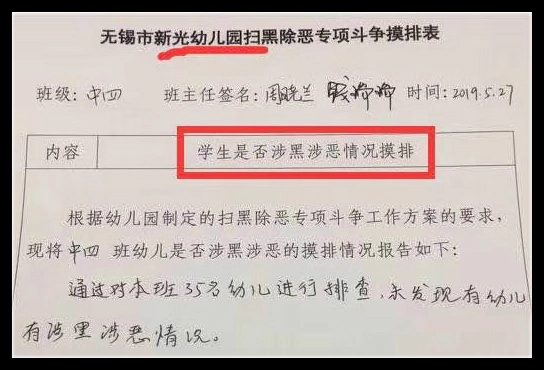 无锡市新光幼儿园扫黑除恶专项斗争摸排表
班级:中四 班主任签名:周晓兰 时间:2019.5.27
内容 学生是否涉黑涉恶情况摸排
根据幼儿园制定的扫黑除恶专项斗争工作方案的要求,
现将中四班幼儿是否涉黑涉恶的摸排情况报告如下:
通过对本班35名幼儿进行排查,未发现有幼儿
有涉黑涉恶情况。